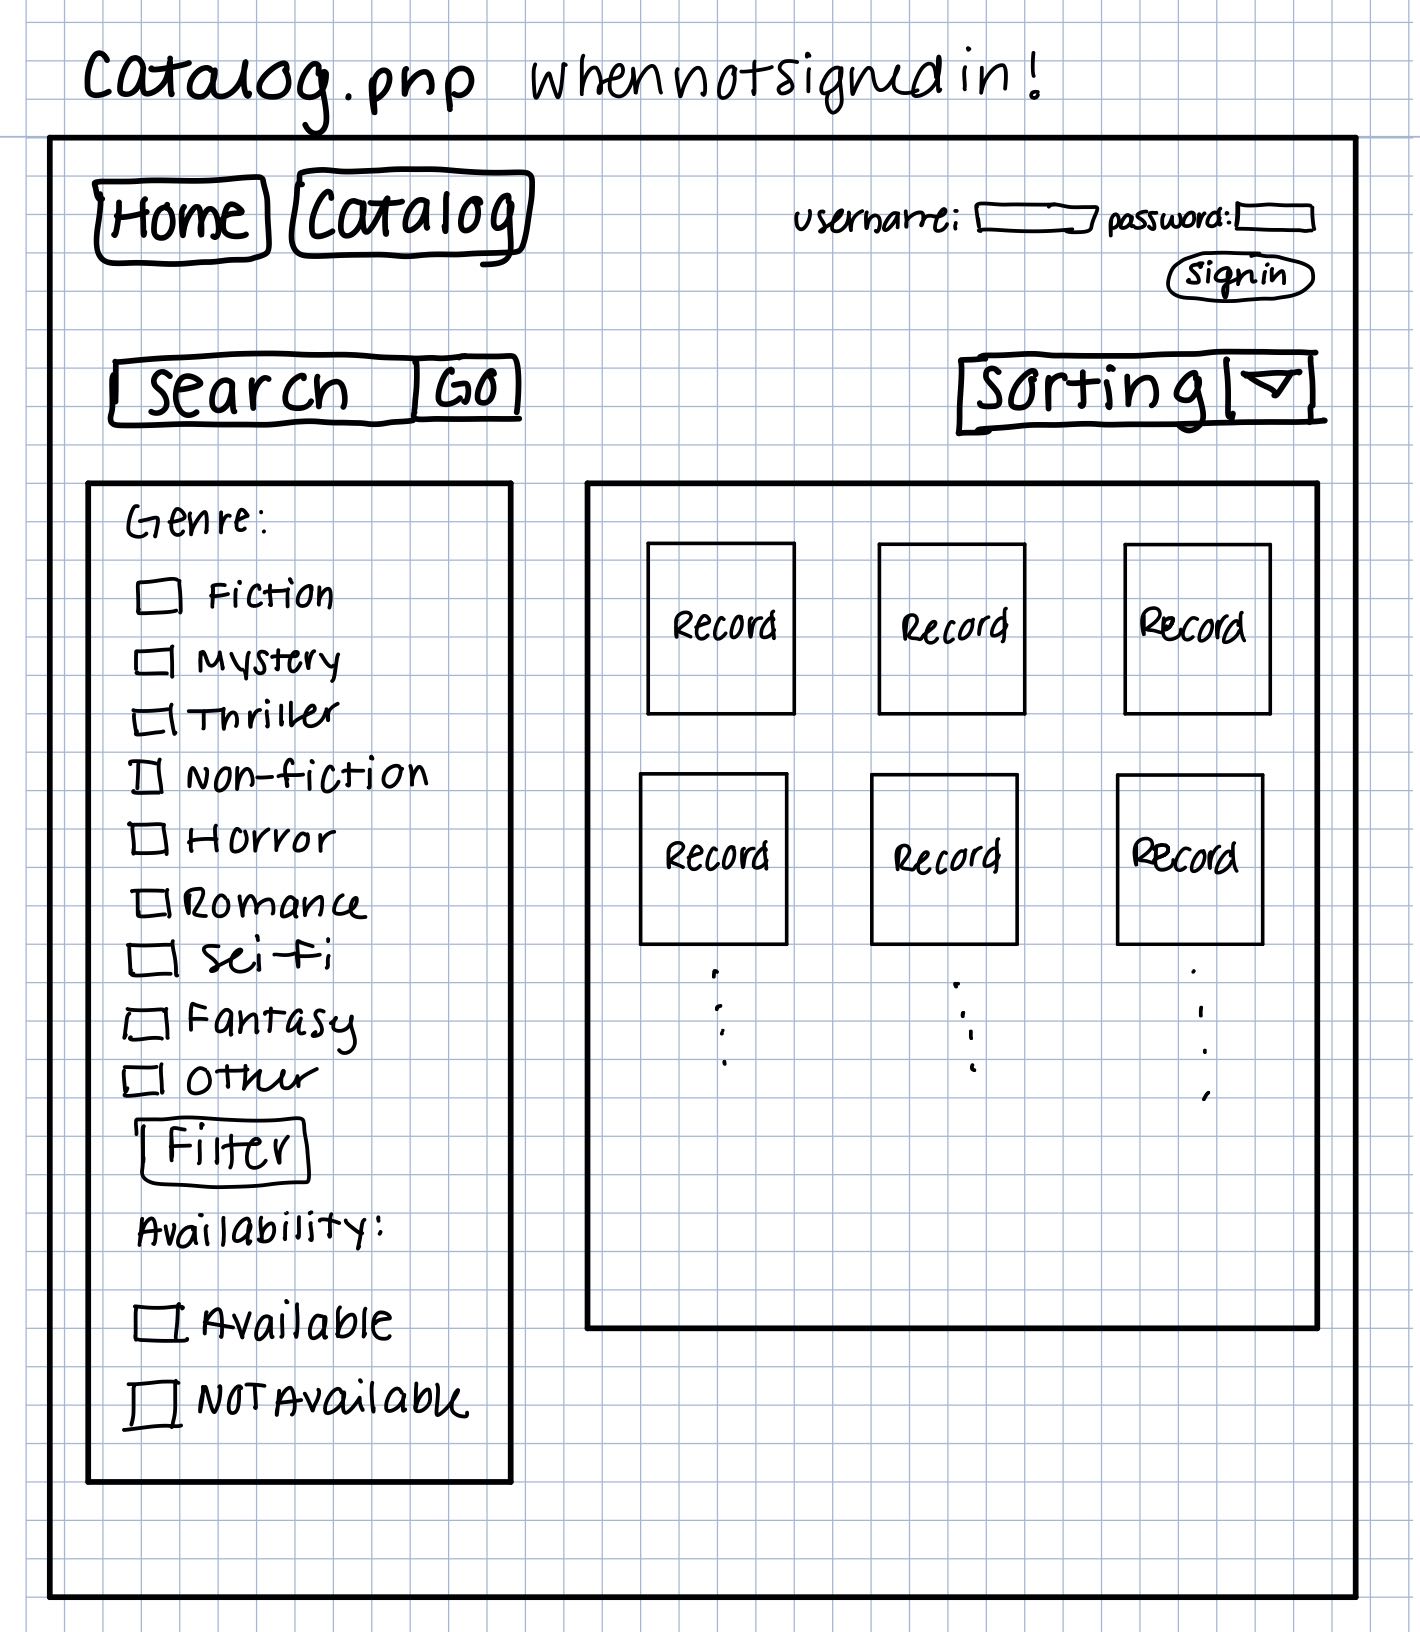 Catalog.php when not signed in!
Home Catalog username: password:
sign in
search GO sorting
Genre:
Fiction
Mystery
Thriller
Non-fiction
Horror
Romance
Sci-Fi
Fantasy
Other
Filter
Availability:
Available
NOT Available
Record Record Record
Record Record Record